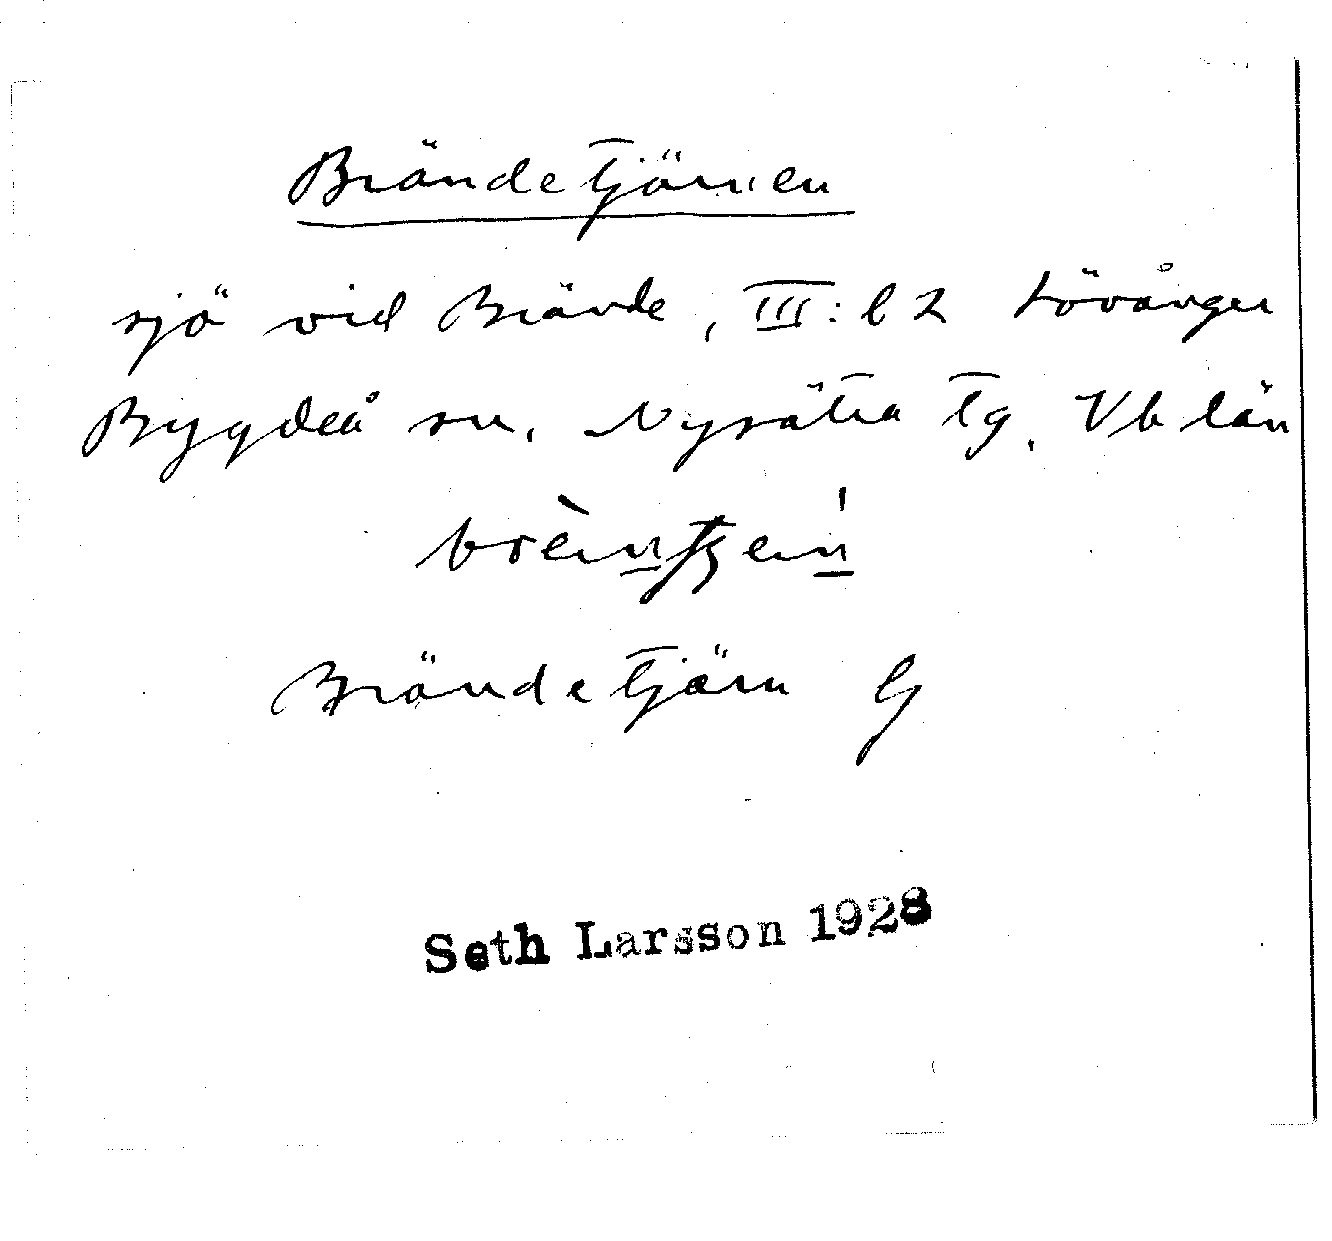 Brändetjärnen
sjö vid Brände, III: b2 Lövånger
Bygdeå sn. Nysätra tg. Vb län
Brändetjärn G
Seth Larsson 1928